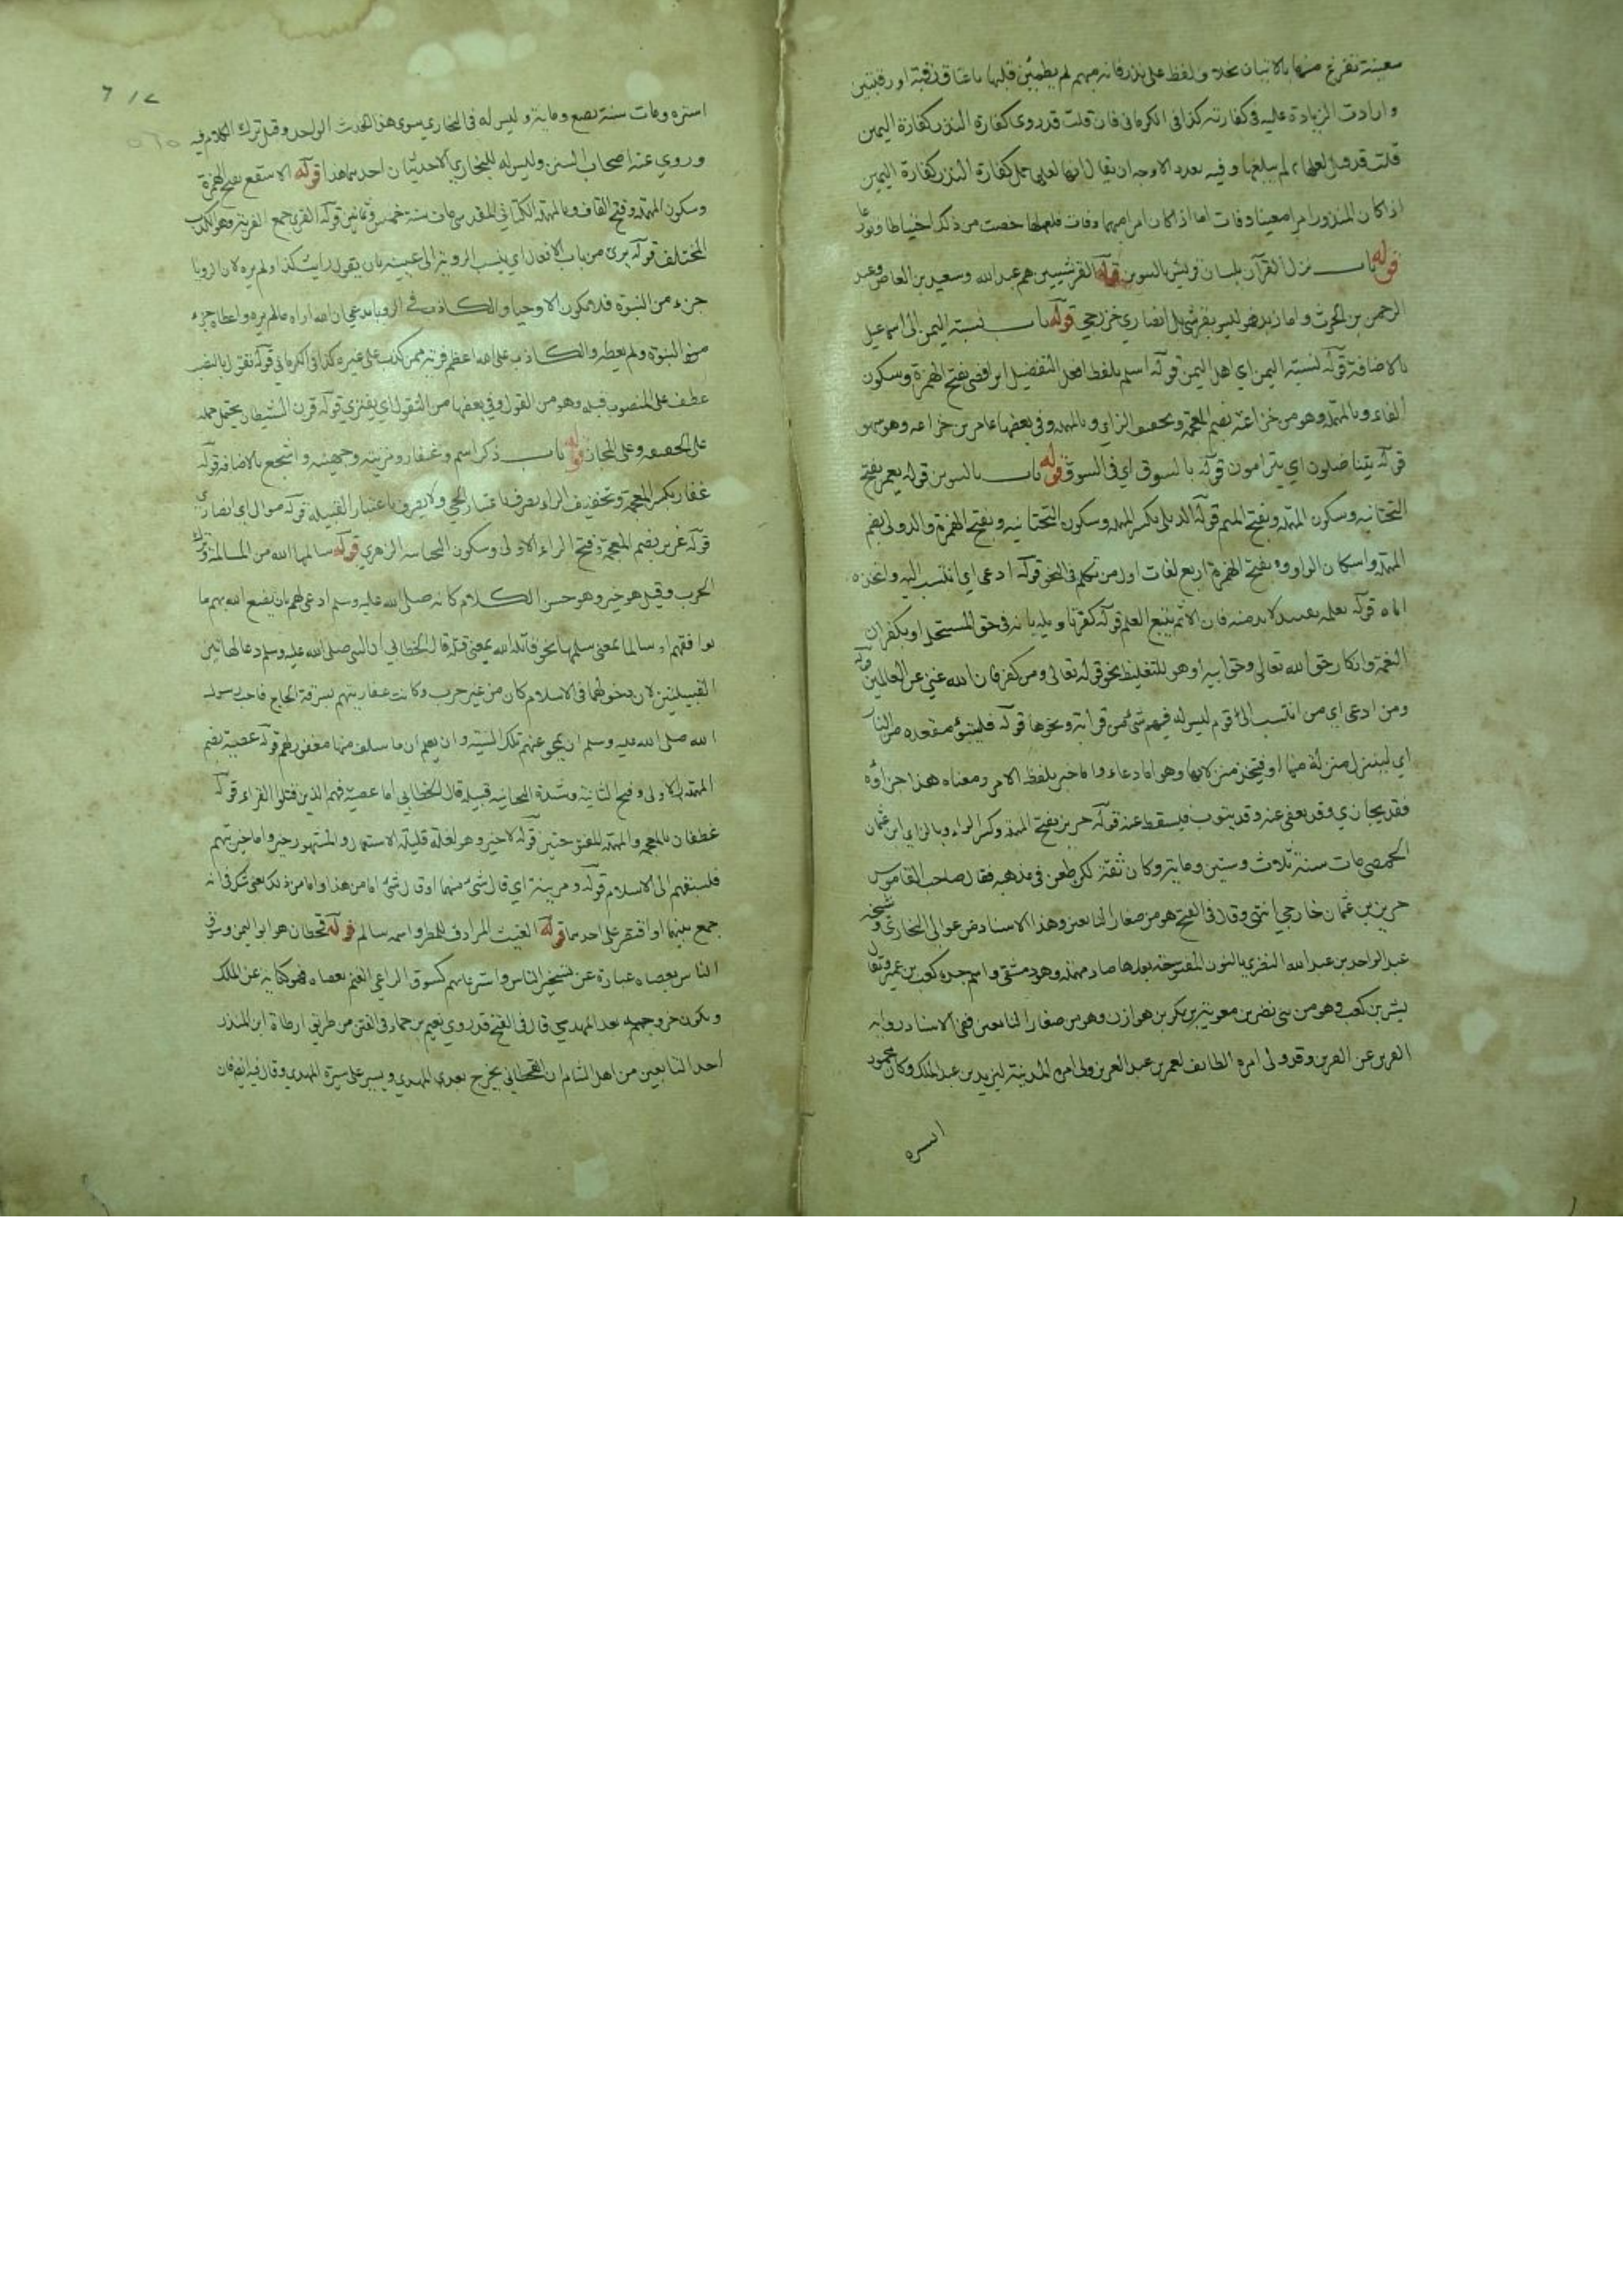 معينة تفرغ منها بالاتيان بخلاف لفظ علي نذر فانه مبهم لم يطمئن قلبها باعتاق رقبة او رقبتين
وارادت الزيادة عليه في كفارته كذا في الكرماني فان قلت قد روى كفارة النذر كفارة اليمين
قلت قد قيل لعلها لم يبلغها وفيه بعد والاوجه ان يقال انها لعلها حمل كفارة النذر كفارة اليمين
اذا كان المنذور امرا معينا وفات اما اذا كان امرا مبهما وفات فلعلها خصت من ذلك احتياطا وتورعا
قوله باب نزل القرآن بلسان قريش بالتنوين قوله القرشيين هم عبد الله وسعيد بن العاص وعبد
الرحمن بن الحرث واما زيد فهو ليس بقرشي بل انصاري خزرجي قوله باب نسبة اليمن الى اسماعيل
بالاضافة قوله نسبة اليمن اي اهل اليمن قوله اسلم بلفظ افعل التفضيل ابن افصى بفتح الهمزة وسكون
الفاء وبالمهملة وهو من خزاعة بضم المعجمة وتخفيف الزاي وبالمهملة وفي بعضها عامر بن خزاعة وهو سهو
قوله يتناضلون اي يترامون قوله بالسوق اي في السوق قوله باب بالتنوين قوله يعمر بفتح
التحتانية وسكون المهملة وبفتح الميم قوله الديلي بكسر المهملة وسكون التحتانية وبفتح الهمزة والدولي بضم
المهملة واسكان الواو وبفتح الهمزة اربع لغات اول من تكلم في النحو قوله ادعى اي انتسب اليه واتخذه
اباه قوله يعلمه بعيد لابد منه فان الاثم يتبع العلم قوله كفر تاويله بانه في حق المستحل او بكفران
النعمة وانكار حق الله تعالى وحق ابيه او هو للتغليظ نحو قوله تعالى ومن كفر فان الله غني عن العالمين قوله
ومن ادعى اي من انتسب الى قوم ليس له فيهم شئ من قرابة ونحوها قوله فليتبوأ مقعده من النار
اي لينزل منزلة منها او فيتخذ منزلا بها وهو اما دعاء واما خبر بلفظ الامر ومعناه هذا جزاؤه
فقد يجازي وقد يعفى عنه وقد يتوب فيسقط عنه قوله حريز بفتح المهملة وكسر الراء وبالزاي ابن عثمان
الحمصي مات سنة ثلاث وستين ومايه وكان ثقة لكن طعن في مذهبه فقال صاحب القاموس
حريز بن عثمان خارجي انتهى وقال في الفتح هو من صغار التابعين وهذا الاسناد من عوالي البخاري وشيخه
عبد الواحد بن عبد الله النصري بالنون المفتوحة بعدها صاد مهملة وهو دمشقي واسم جده كعب بن عمير ويقال
بشر بن كعب وهو من بني نصر بن معوية بن بكر بن هوازن وهو من صغار التابعين ففي الاسناد رواية
القرين عن القرين وقد ولي امرة الطائف لعمر بن عبد العزيز ولي امرة المدينة ليزيد بن عبد الملك وكان محمود
السره
استره ومات سنة بضع ومايه وليس له في البخاري سوى هذا الحديث الواحد وقيل ترك الكلام فيه
وروي عنه اصحاب السنن وليس له للبخاري الا حديثان احدهما هذا قوله الاسقع بفتح الهمزة
وسكون المهملة وفتح القاف وبالمهملة الكناني المقدسي مات سنة خمس وثمانين قوله الفرى جمع الفرية وهو الكذب
المختلق قوله يرى من باب الافعال اي ينسب الروية الى عينيه بان يقول رايت كذا ولم يره لان الرويا
جزء من النبوة فلا تكون الا وحيا والكاذب في الرويا يدعي ان الله اراه ما لم يره واعطاه جزء
من النبوة ولم يعطه والكاذب على الله اعظم فرية ممن كذب على غيره كذا في الكرماني قوله تقول بالنصب
عطف على المنصوب قبله وهو من القول وفي بعضها من التقول اي يفتري قوله قرن الشيطان يحتمل حمله
على الحقيقة وعلى المجاز قوله باب ذكر اسلم وغفار ومزينة وجهينة واشجع بالاضافة قوله
غفار بكسر المعجمة وتخفيف الراء يصرف باعتبار الحي ولا يصرف باعتبار القبيلة قوله موالي اي انصاري
قوله غرير بضم المعجمة وفتح الراء الاولى وسكون التحتانية الزهري قوله سالمها الله من المسالمة وترك
الحرب وقيل هو خبر وهو حسن الكلام كانه صلى الله عليه وسلم ادعى لهم بان يضع الله بهم ما
يوافقهم او سالما بمعنى سلمها نحو قاتله الله بمعنى قتله قال الخطابي ان النبي صلى الله عليه وسلم دعا لهاتين
القبيلتين لان دخولهما في الاسلام كان من غير حرب وكانت غفار تتهم بسرقة الحاج فاحب رسول
الله صلى الله عليه وسلم ان يمحو عنهم تلك السيئة وان يعلم ان ما سلف منها مغفور لهم قوله عصية بضم
المهملة الاولى وفتح الثانية وشدة التحتانية قبيلة قال الخطابي اما عصية فهم الذين قتلوا القراء قوله
غطفان بالمعجمة والمهملة المفتوحتين قوله لاخير وهو لغة قليلة الاستعمال والمشهور خير واما خيريتهم
فلسبقهم الى الاسلام قوله ومزينة اي قال شئ منهما او قال شئ اما من هذا واما من ذلك يعني شك في انه
جمع بينهما او اقتصر على احدهما قوله الغيث المرادف للمطر واسمه سالم قوله قحطان هو ابو اليمن وسوق
الناس بعصاه عبارة عن تسخير الناس واسترعائهم كسوق الراعي الغنم بعصاه فهو كناية عن الملك
ويكون خروجهم بعد المهدي قال في الفتح قد روي نعيم بن حماد في الفتن من طريق ارطاة ابن المنذر
احد التابعين من اهل الشام ان القحطاني يخرج بعدي المهدي ويسير على سيرة المهدي وقال فيه ايضا فان